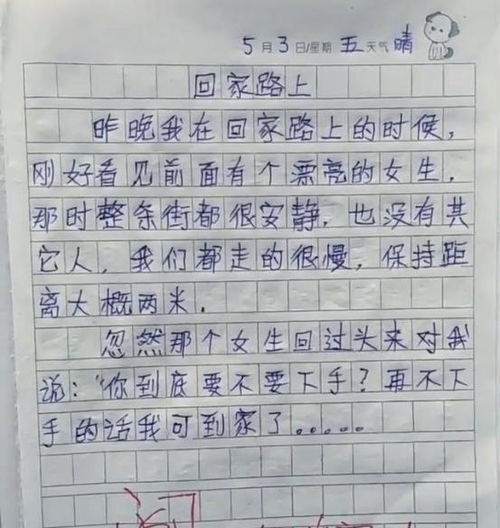 5月3日/星期五天气晴
回家路上
昨晚我在回家路上的时候，
刚好看见前面有个漂亮的女生，
那时整条街都很安静，也没有其
它人，我们都走的很慢，保持距
离大概两米．
忽然那个女生回过头来对我
说："你到底要不要下手？再不下
手的话我可到家了．．．．．．